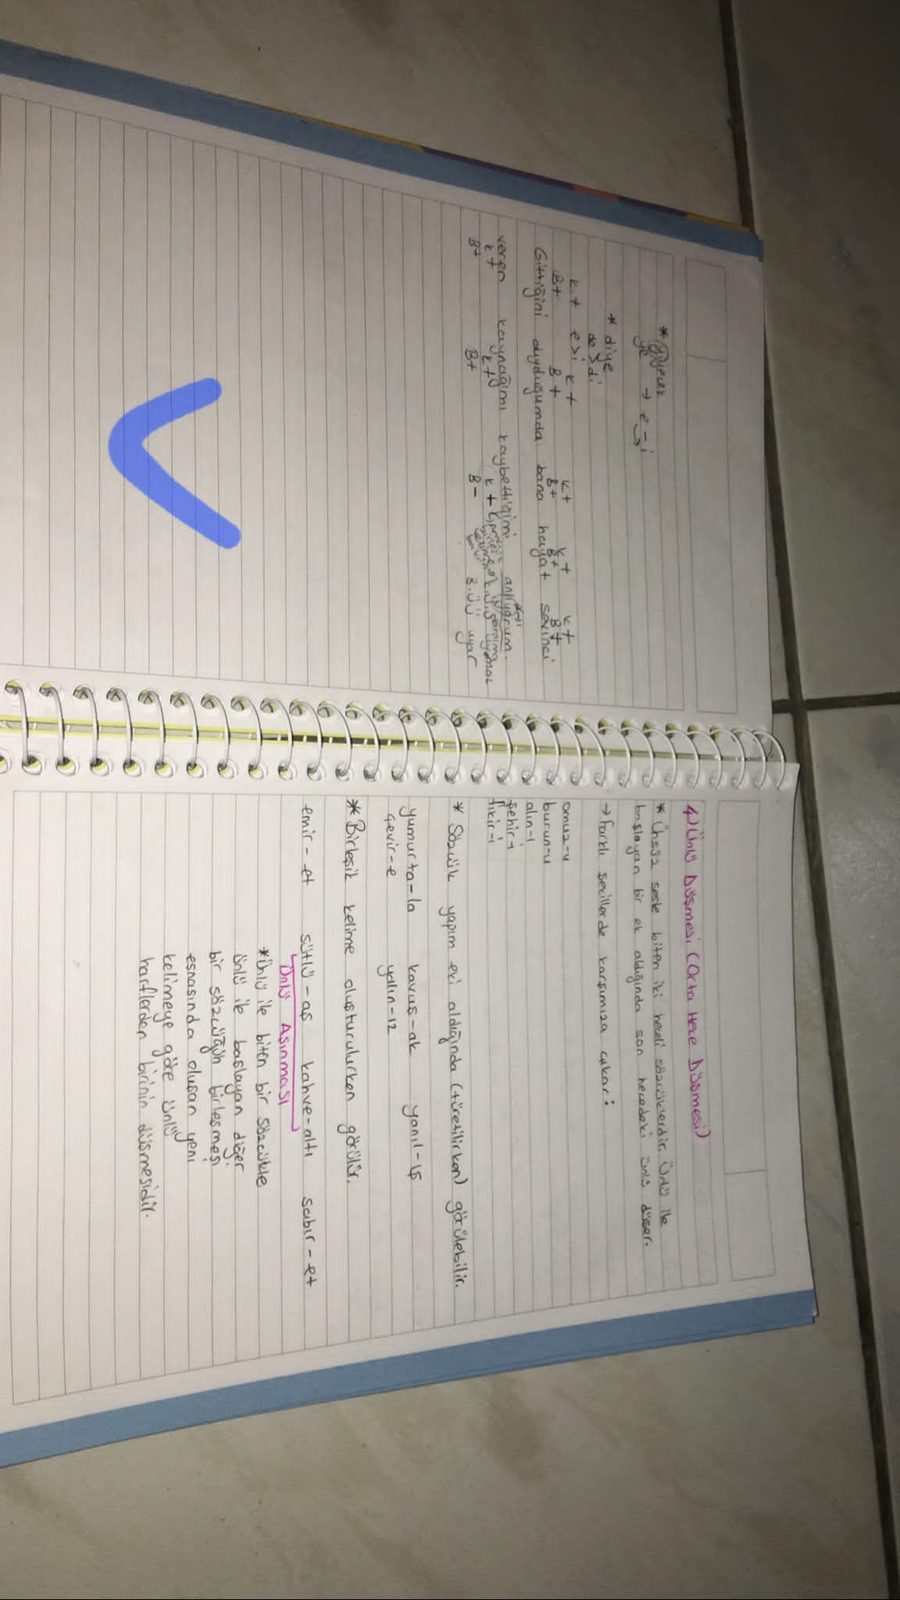 * yiyecek
ye → e-i
* diye
de di
k+ esi k+ k+ k+ k+
B+ B+ B+ B+ B+
Gittiğini duyduğumda bana hayat sevinci
veren kaynağımı kaybettiğimi anlıyorum.
k+ k+ k+
B+ B+ B- B.Ü.U uyar
4) Ünlü Düşmesi (Orta Hece Düşmesi)
* Ünsüz sesle biten iki heceli sözcüklerdir. Ünlü ile
başlayan bir ek aldığında son hecedeki ünlü düşer.
→ Farklı şekillerde karşımıza çıkar:
omuz-u
burun-u
alın-ı
şehir-i
fikir-i
* Sözcük yapım eki aldığında (türetilirken) görülebilir.
yumurta-la kavuş-ak yanıl-ış
çevir-e yalın-ız
* Birleşik kelime oluşturulurken görülür.
emir-et sütlü-aş kahve-altı sabır-et
Ünlü Aşınması
* Ünlü ile biten bir sözcükle
ünlü ile başlayan diğer
bir sözcüğün birleşmesi
esnasında oluşan yeni
kelimeye göre ünlü
harflerden birinin düşmesidir.